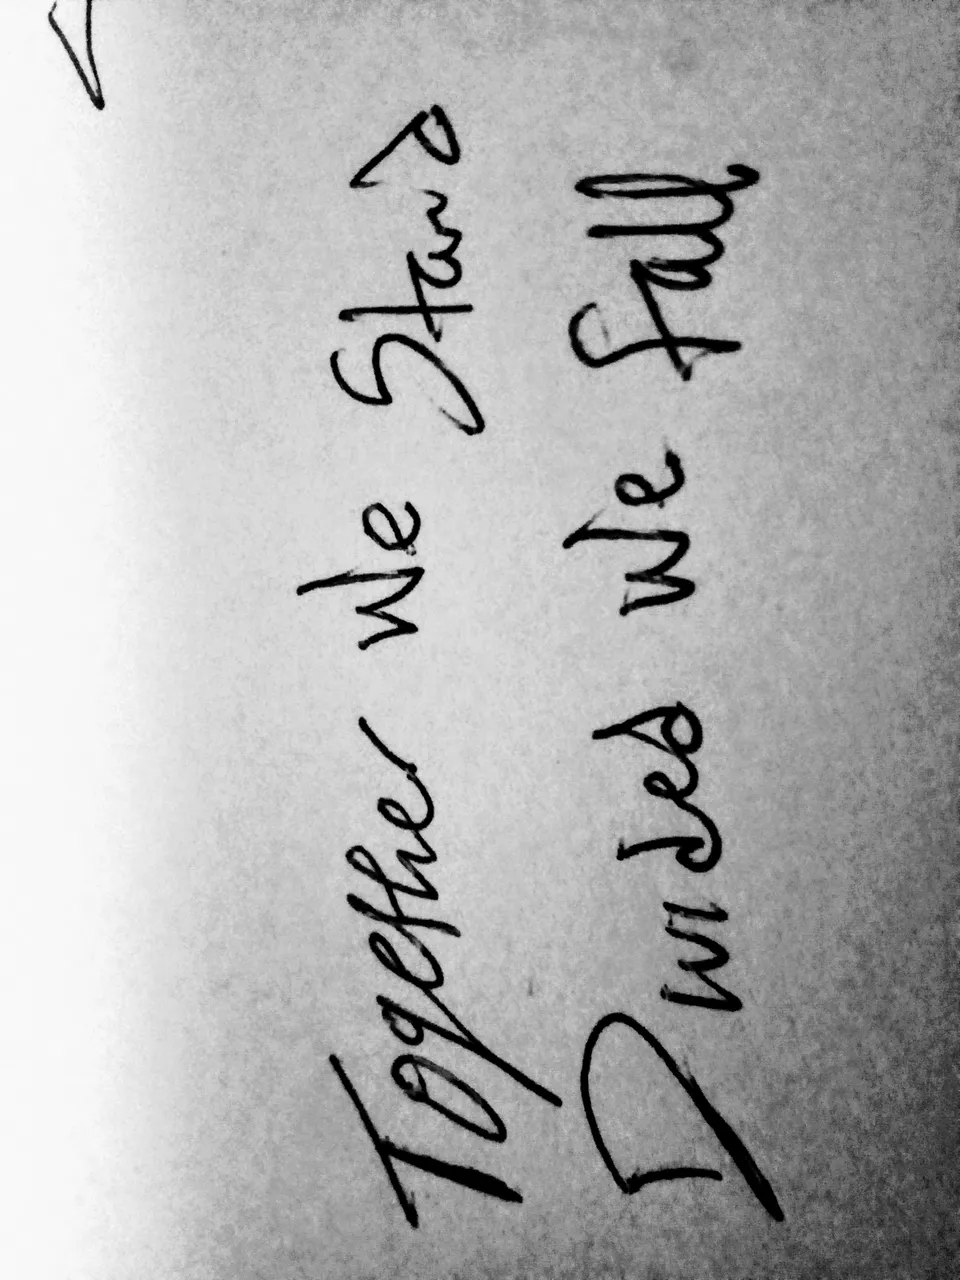 Together we Stand
Divided we fall